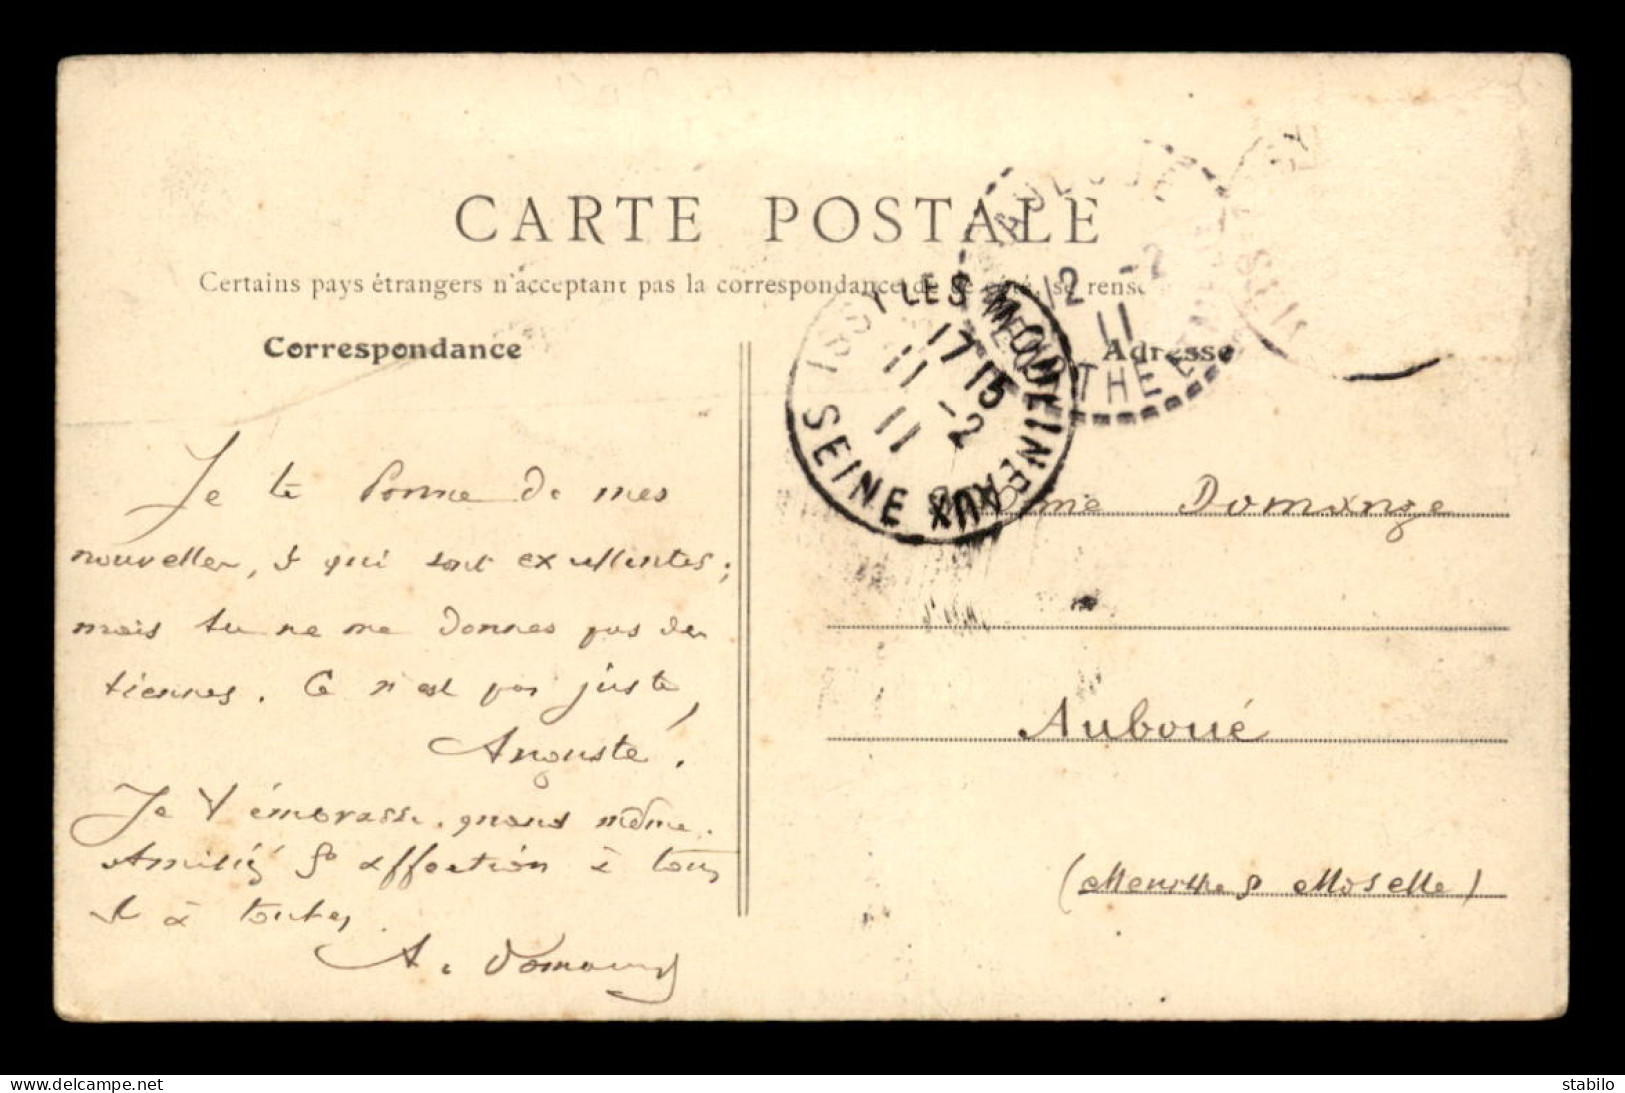 CARTE POSTALE
Certains pays étrangers n'acceptent pas la correspondance de ce côté, se rens
Correspondance
Adresse
Je te donne de mes
nouvelles, & qui sont excellentes;
mais tu ne me donnes pas des
tiennes. Ce n'est pas juste,
Auguste.
Je t'embrasse quand même.
Amitié & affection à tous
et à toutes.
A. Domange
ISSY LES MOULINEAUX
17 15
11 -2
11
SEINE
AUBOUÉ
12 -2
11
MEURTHE ET
Mme Domange
Auboué
(Meurthe & Moselle)
www.delcampe.net
stabilo